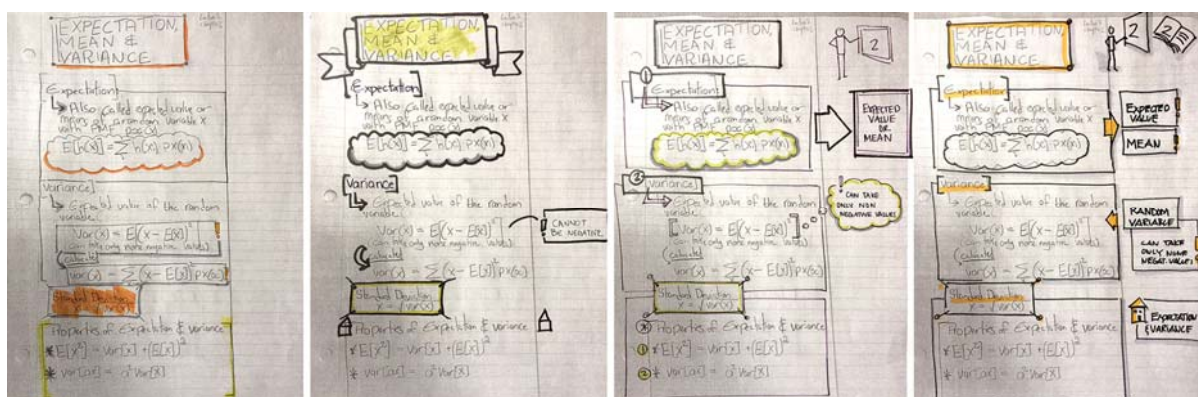 EXPECTATION,
MEAN &
VARIANCE
Expectation
↳ Also called expected value or
means of a random variable X
with PMF
E[h(x)] = ∑ h(x). px(x)
Variance
↳ Expected value of the random
variable.
Var(x) = E[(x - E(x))²]
can take only none negative values)
(calculate)
var(x) = ∑(x - E[x])² px(x)
Standard Deviation
x = √var(x)
Properties of Expectation & variance
* E[x²] - var[x] + (E[x])²
* var[ax] = a² var[x]
EXPECTATION,
MEAN &
VARIANCE
Expectation
↳ Also called expected value or
means of a random variable X
with PMF
E[h(x)] = ∑ h(x). px(x)
Variance
↳ Expected value of the random
variable.
Var(x) = E[(x - E(x))²]
can take only none negative values)
(calculate)
var(x) = ∑(x - E[x])² px(x)
CANNOT
BE NEGATIVE
Standard Deviation
x = √var(x)
Properties of Expectation & variance
* E[x²] - var[x] + (E[x])²
* var[ax] = a² var[x]
EXPECTATION,
MEAN &
VARIANCE
2
① Expectation
↳ Also called expected value or
means of a random variable X
with PMF
E[h(x)] = ∑ h(x). px(x)
EXPECTED
VALUE
OR
MEAN
② Variance
↳ Expected value of the random
variable.
Var(x) = E[(x - E(x))²]
can take only none negative values)
(calculate)
var(x) = ∑(x - E[x])² px(x)
! CAN TAKE
ONLY NON
NEGATIVE VALUES
Standard Deviation
x = √var(x)
Properties of Expectation & variance
① * E[x²] - var[x] + (E[x])²
② * var[ax] = a² var[x]
EXPECTATION,
MEAN &
VARIANCE
2 2
Expectation
↳ Also called expected value or
means of a random variable X
with PMF
E[h(x)] = ∑ h(x). px(x)
EXPECTED
VALUE
MEAN
Variance
↳ Expected value of the random
variable.
Var(x) = E[(x - E(x))²]
can take only none negative values)
(calculate)
var(x) = ∑(x - E[x])² px(x)
RANDOM
VARIABLE
CAN TAKE
ONLY NONE
NEGAT. VALUES
Standard Deviation
x = √var(x)
Properties of Expectation & variance
* E[x²] - var[x] + (E[x])²
* var[ax] = a² var[x]
EXPECTATION
& VARIANCE